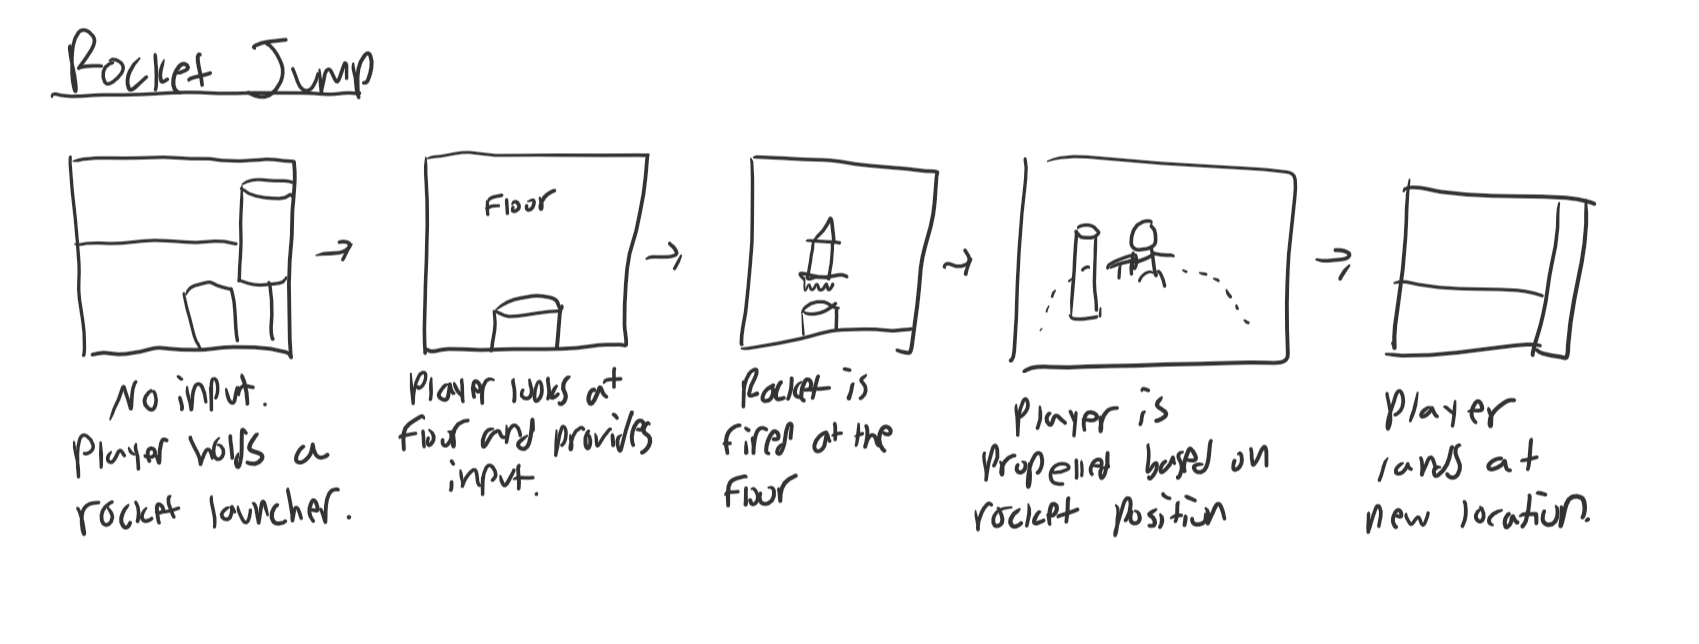 Rocket Jump
Floor
No input.
Player holds a
rocket launcher.
Player looks at
floor and provides
input.
Rocket is
fired at the
floor
Player is
propelled based on
rocket position
Player
lands at
new location.